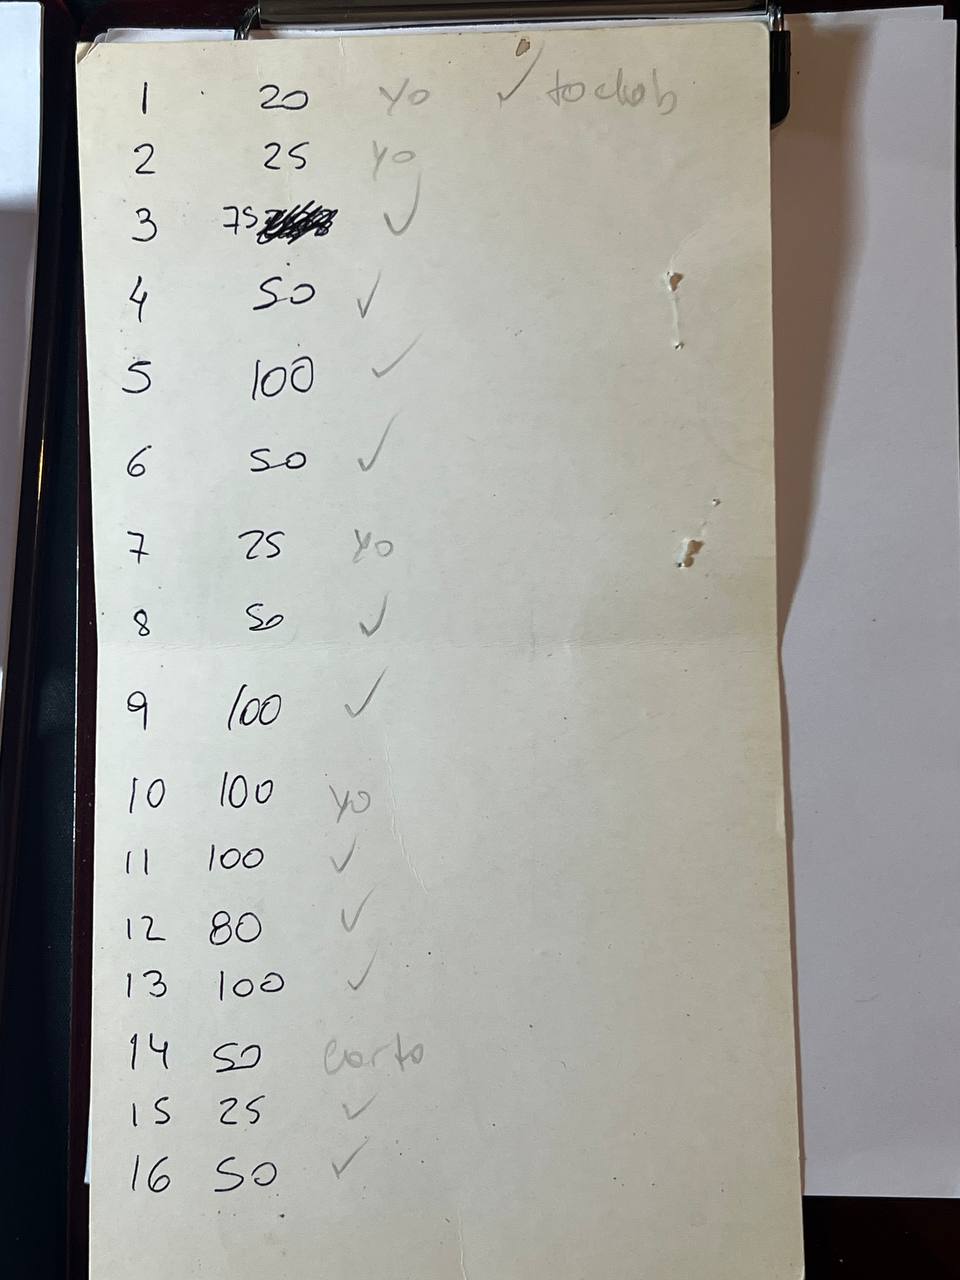 1 20 yo ✓
2 25 yo
3 75 ✓
4 50 ✓
5 100 ✓
6 50 ✓
7 25 yo
8 50 ✓
9 100 ✓
10 100 yo
11 100 ✓
12 80 ✓
13 100 ✓
14 50 corto
15 25 ✓
16 50 ✓